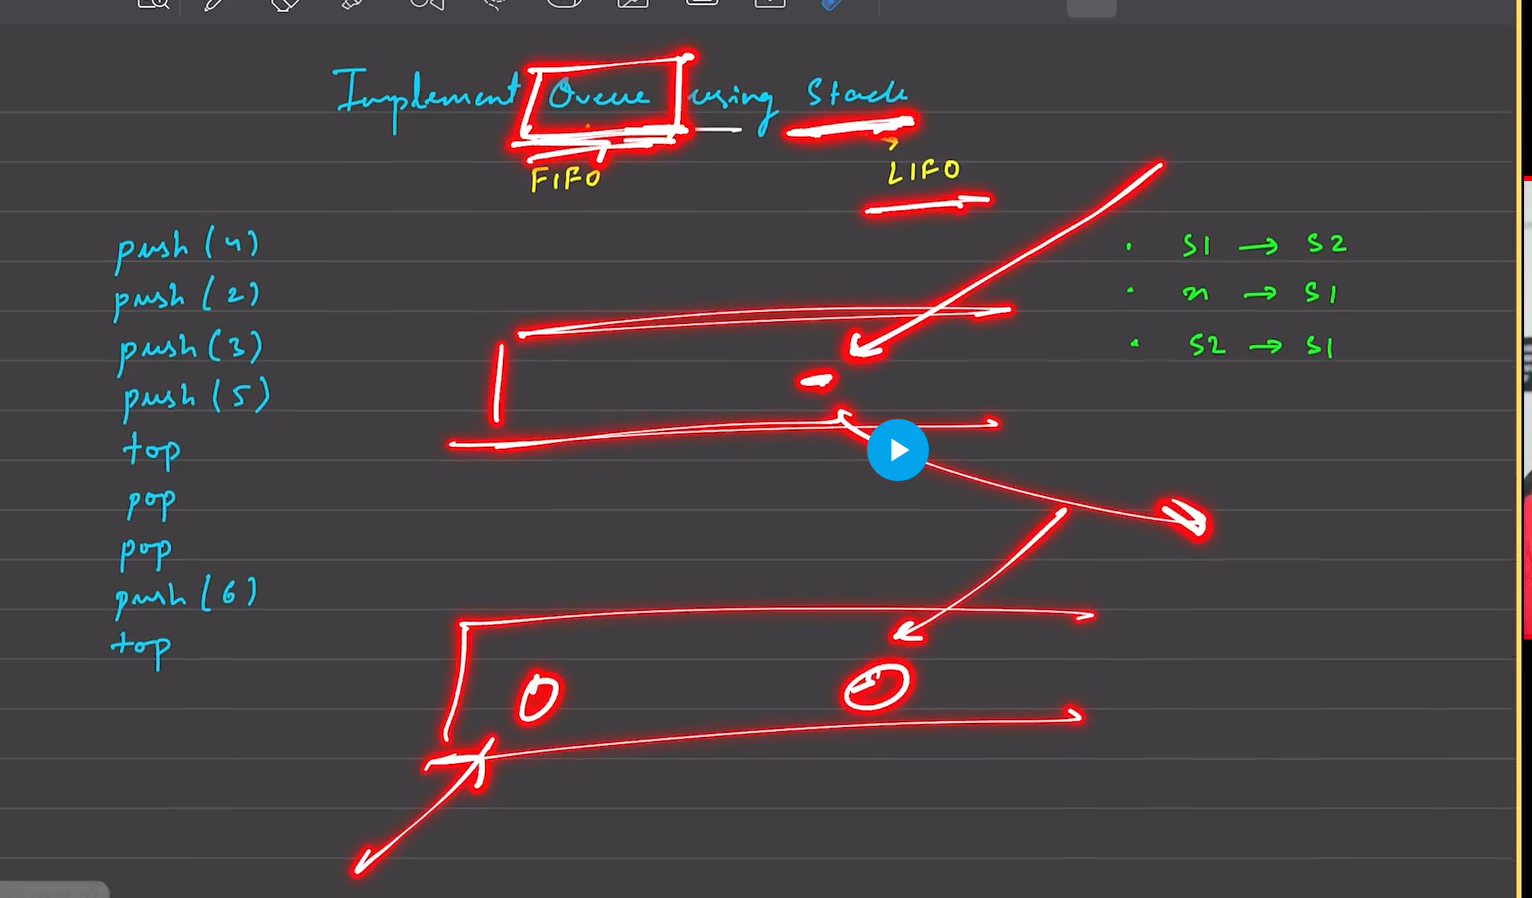 Implement Queue using Stack
FIFO
LIFO
push (4)
push (2)
push (3)
push (5)
top
pop
pop
push (6)
top
. S1 → S2
. x → S1
. S2 → S1